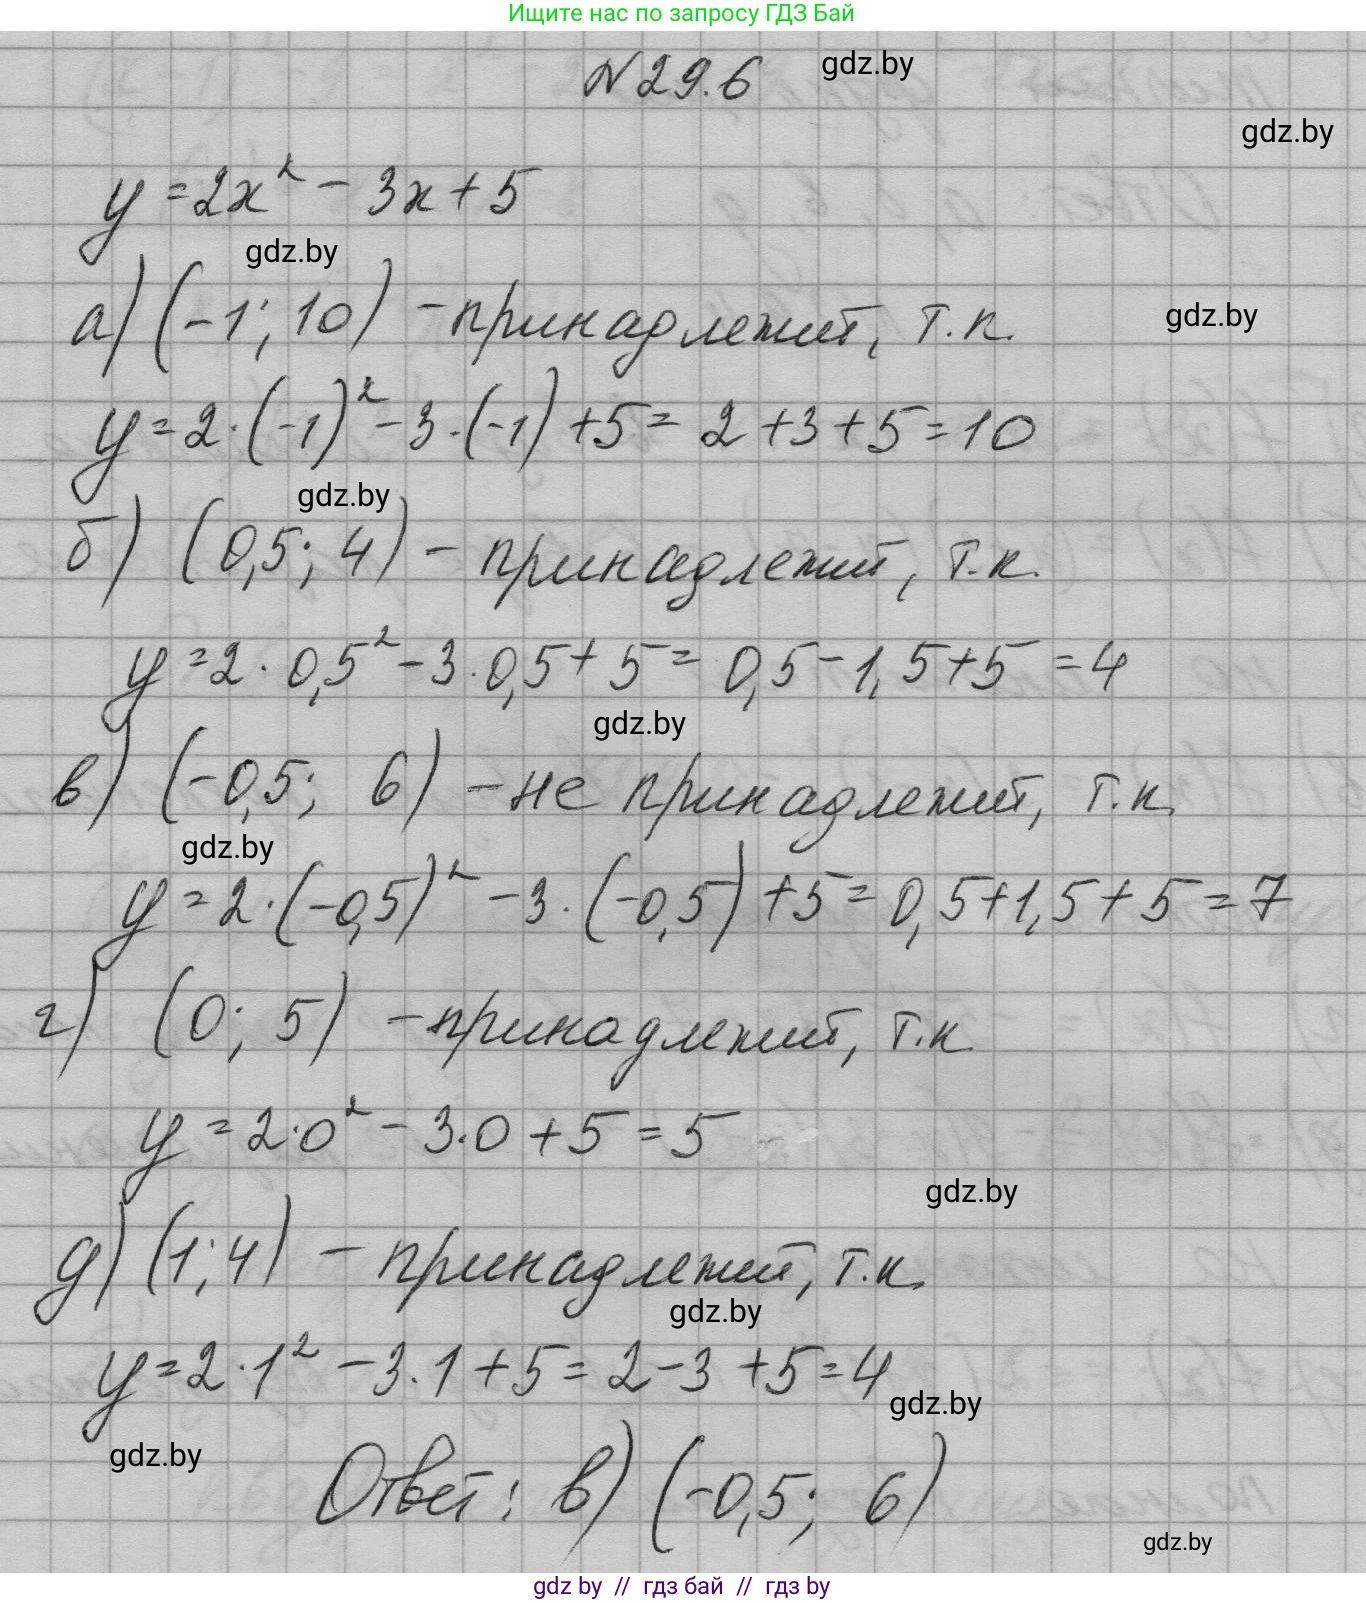 Ищите нас по запросу ГДЗ Бай
№29.6
gdz.by
gdz.by
y = 2x² - 3x + 5
gdz.by
а) (-1; 10) - принадлежит, т.к.
gdz.by
y = 2·(-1)² - 3·(-1) + 5 = 2 + 3 + 5 = 10
gdz.by
б) (0,5; 4) - принадлежит, т.к.
y = 2·0,5² - 3·0,5 + 5 = 0,5 - 1,5 + 5 = 4
gdz.by
в) (-0,5; 6) - не принадлежит, т.к.
gdz.by
y = 2·(-0,5)² - 3·(-0,5) + 5 = 0,5 + 1,5 + 5 = 7
г) (0; 5) - принадлежит, т.к.
y = 2·0² - 3·0 + 5 = 5
gdz.by
д) (1; 4) - принадлежит, т.к.
gdz.by
y = 2·1² - 3·1 + 5 = 2 - 3 + 5 = 4
gdz.by
gdz.by
Ответ: в) (-0,5; 6)
gdz.by
gdz by // гдз бай // gdz by